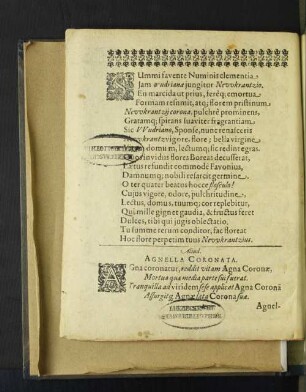 SUmmi favente Numinis clementia
Jam Wudriana jungitur Nevvkrantzio.
En marcida ut prius, ferèq; emortua,
Formam resumit, atq; florem pristinum
Nevvkrantzij corona, pulchrè prominens,
Gratamq; spirans suaviter fragrantiam.
Sic VVudriano, Sponse, nunc renasceris
vigore, flore; bella virgine,
domum, lectumq; sic redintegras.
invidus flores Boreas decusserat,
Lætus refundit commodè Favonius,
Damnumq; nobili resarcit germine.
O ter quater beatus hocce flosculo!
Cujus vigore, odore, pulchritudine,
Lectus, domus, tuumq; cor replebitur,
Qui mille gignet gaudia, & fructus feret
Dulces, tibi qui jugis oblectatio.
Tu summe rerum conditor, fac floreat
Hoc flore perpetim tuus Nevvkrantzius.
Aliud.
AGNELLA CORONATA.
AGna coronatur, reddit vitam Agna Coronæ,
Mortua quæ media parte sui fuerat.
Tranquilla ad viridem sese applicat Agna Coronã
Assurgitq; Agnæ læta Corona suæ.
Agnel-